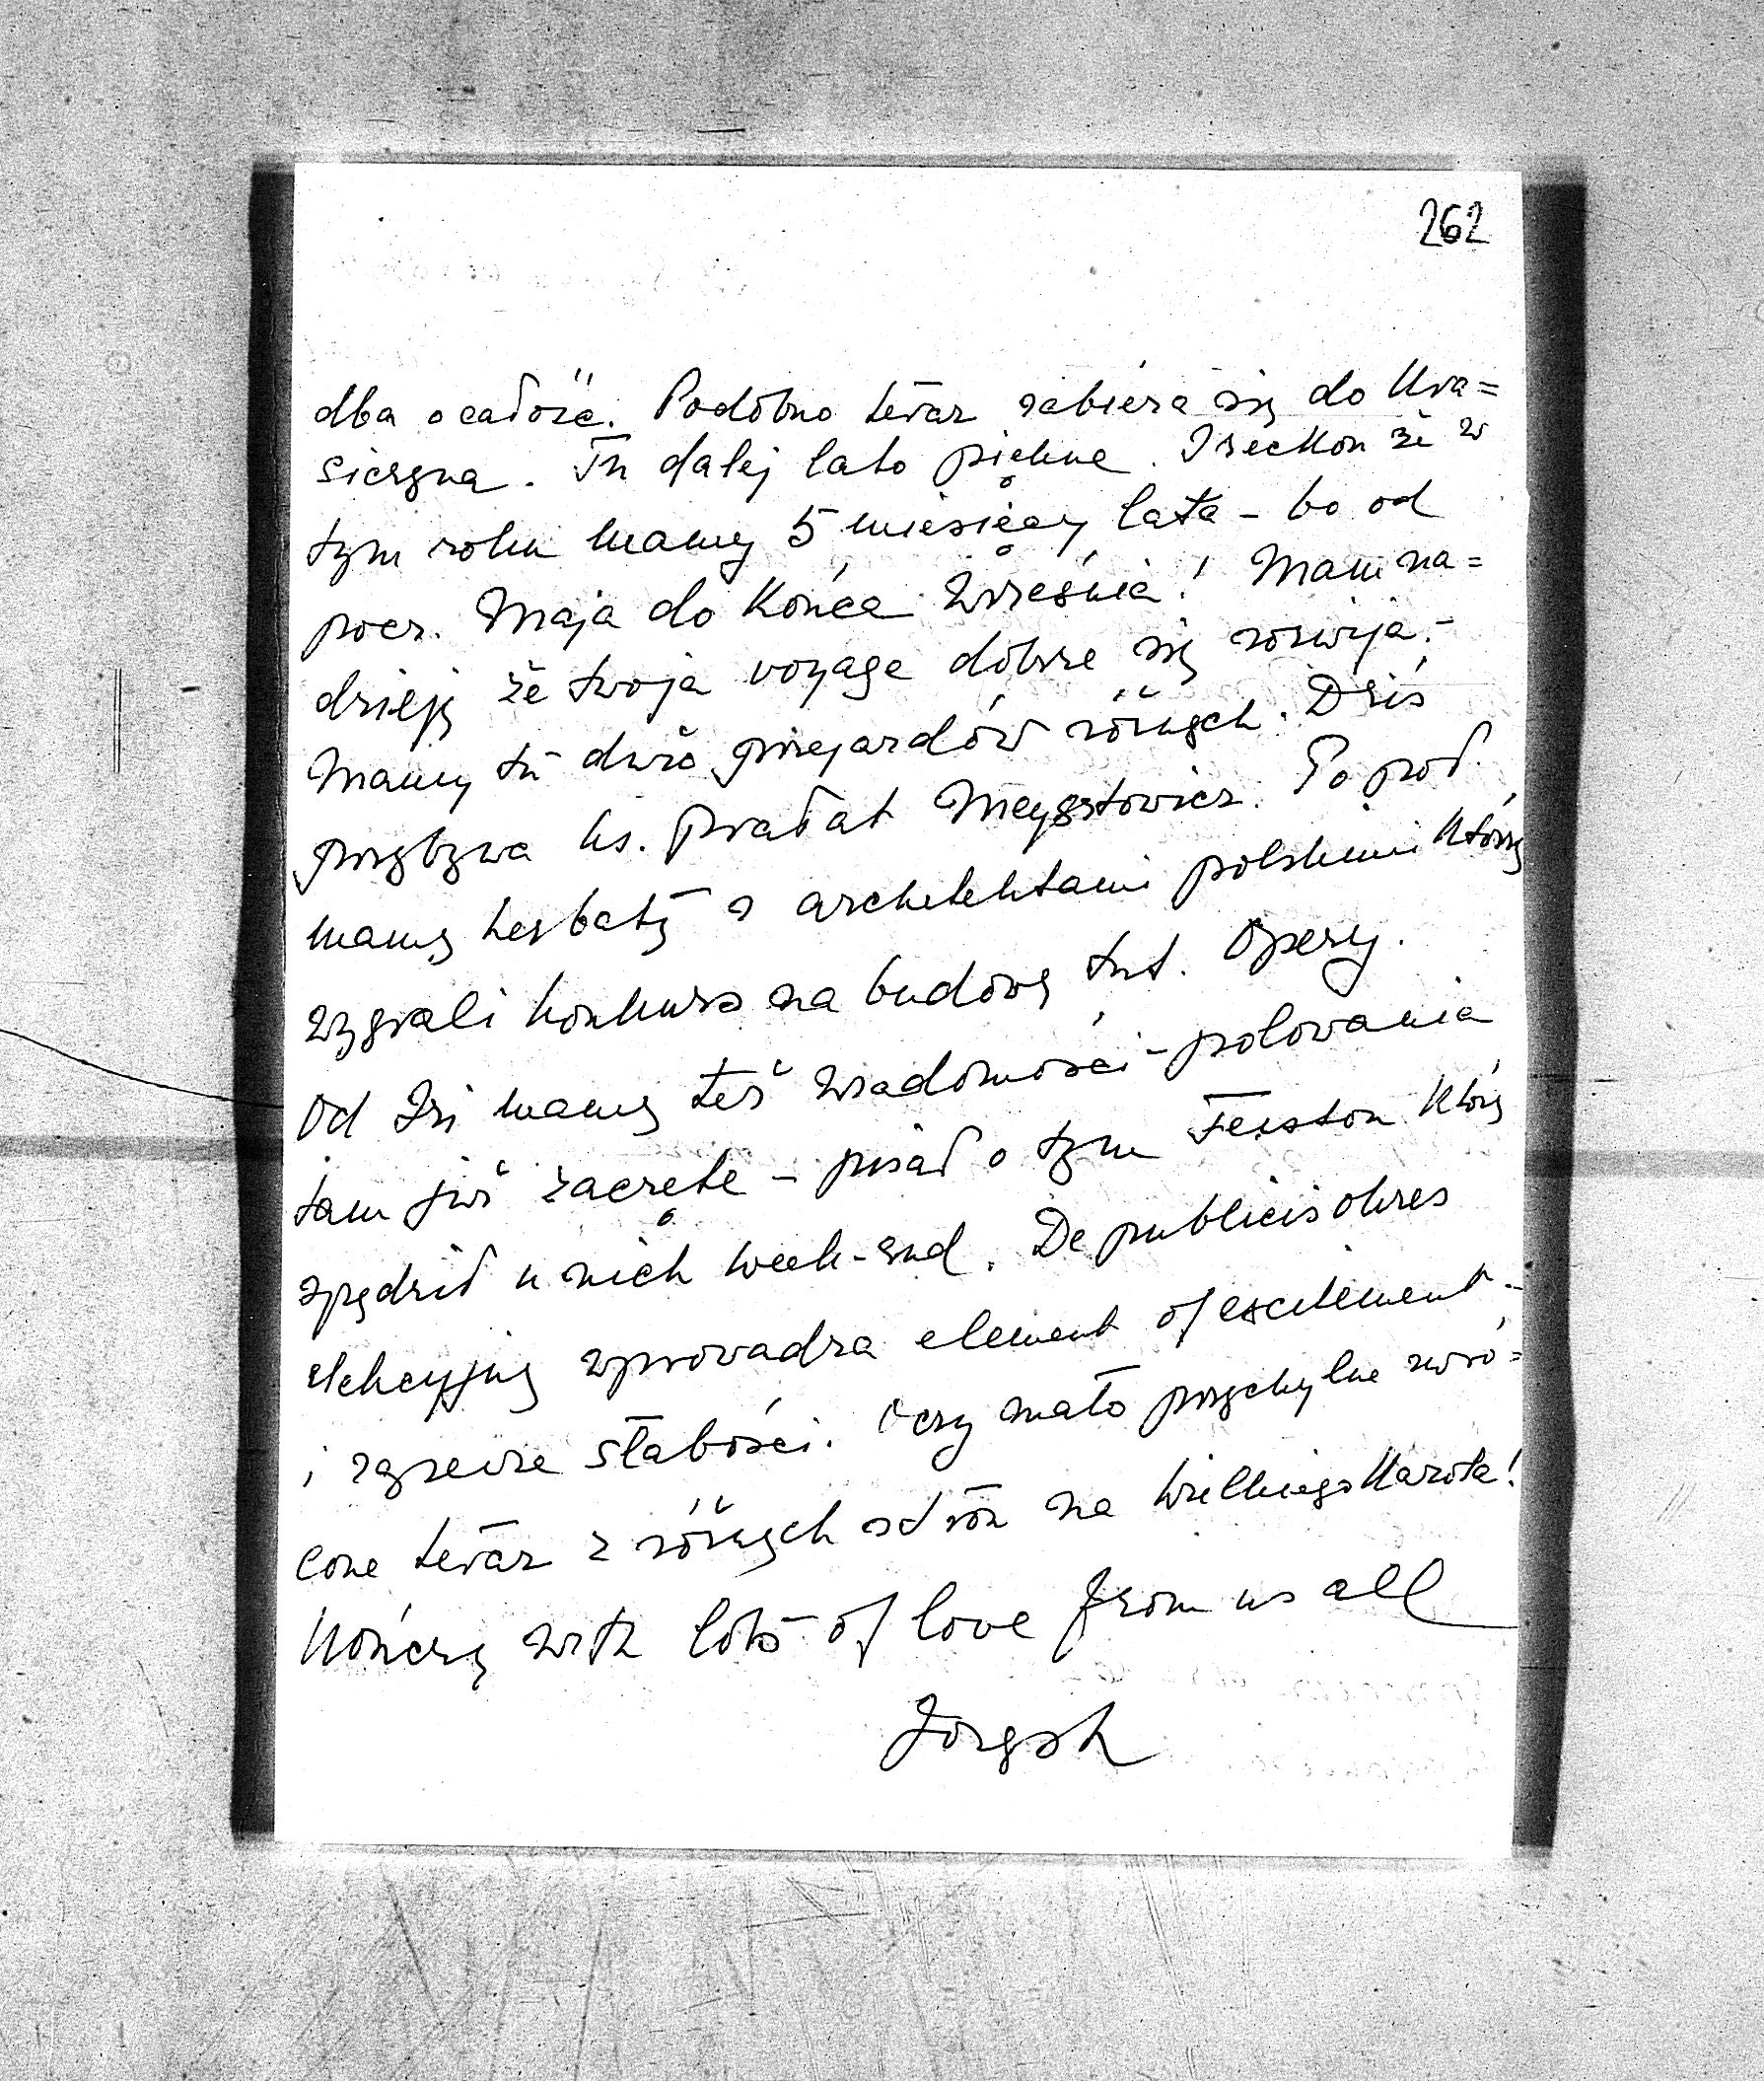 262
dba o całość. Podobno teraz zabiera się do Kra=
siczyna. Tu dalej lato piękne. I reckon że w
tym roku mamy 5 miesięcy lata – bo od
pocz. Maja do Końca Września! Mam na=
dzieję że twoja voyage dobrze się rozwija.–
Mamy tu dużo przejazdów różnych. Dziś
przybywa ks. Prałat Meysztowicz. Po poł.
mamy herbatę z architektami polskimi którzy
wygrali konkurs na budowę tut. Opery.
Od Izi mamy też wiadomości – polowania
tam już zaczęte – pisał o tym Feiston który
spędził u nich week-end. De publicis okres
elekcyjny wprowadza element of excitement –
i zgrzewze słabości. Oczy mało przychylne zwró=
cone teraz z różnych stron na Wielkiego Karola!
Kończę with lots of love from us all